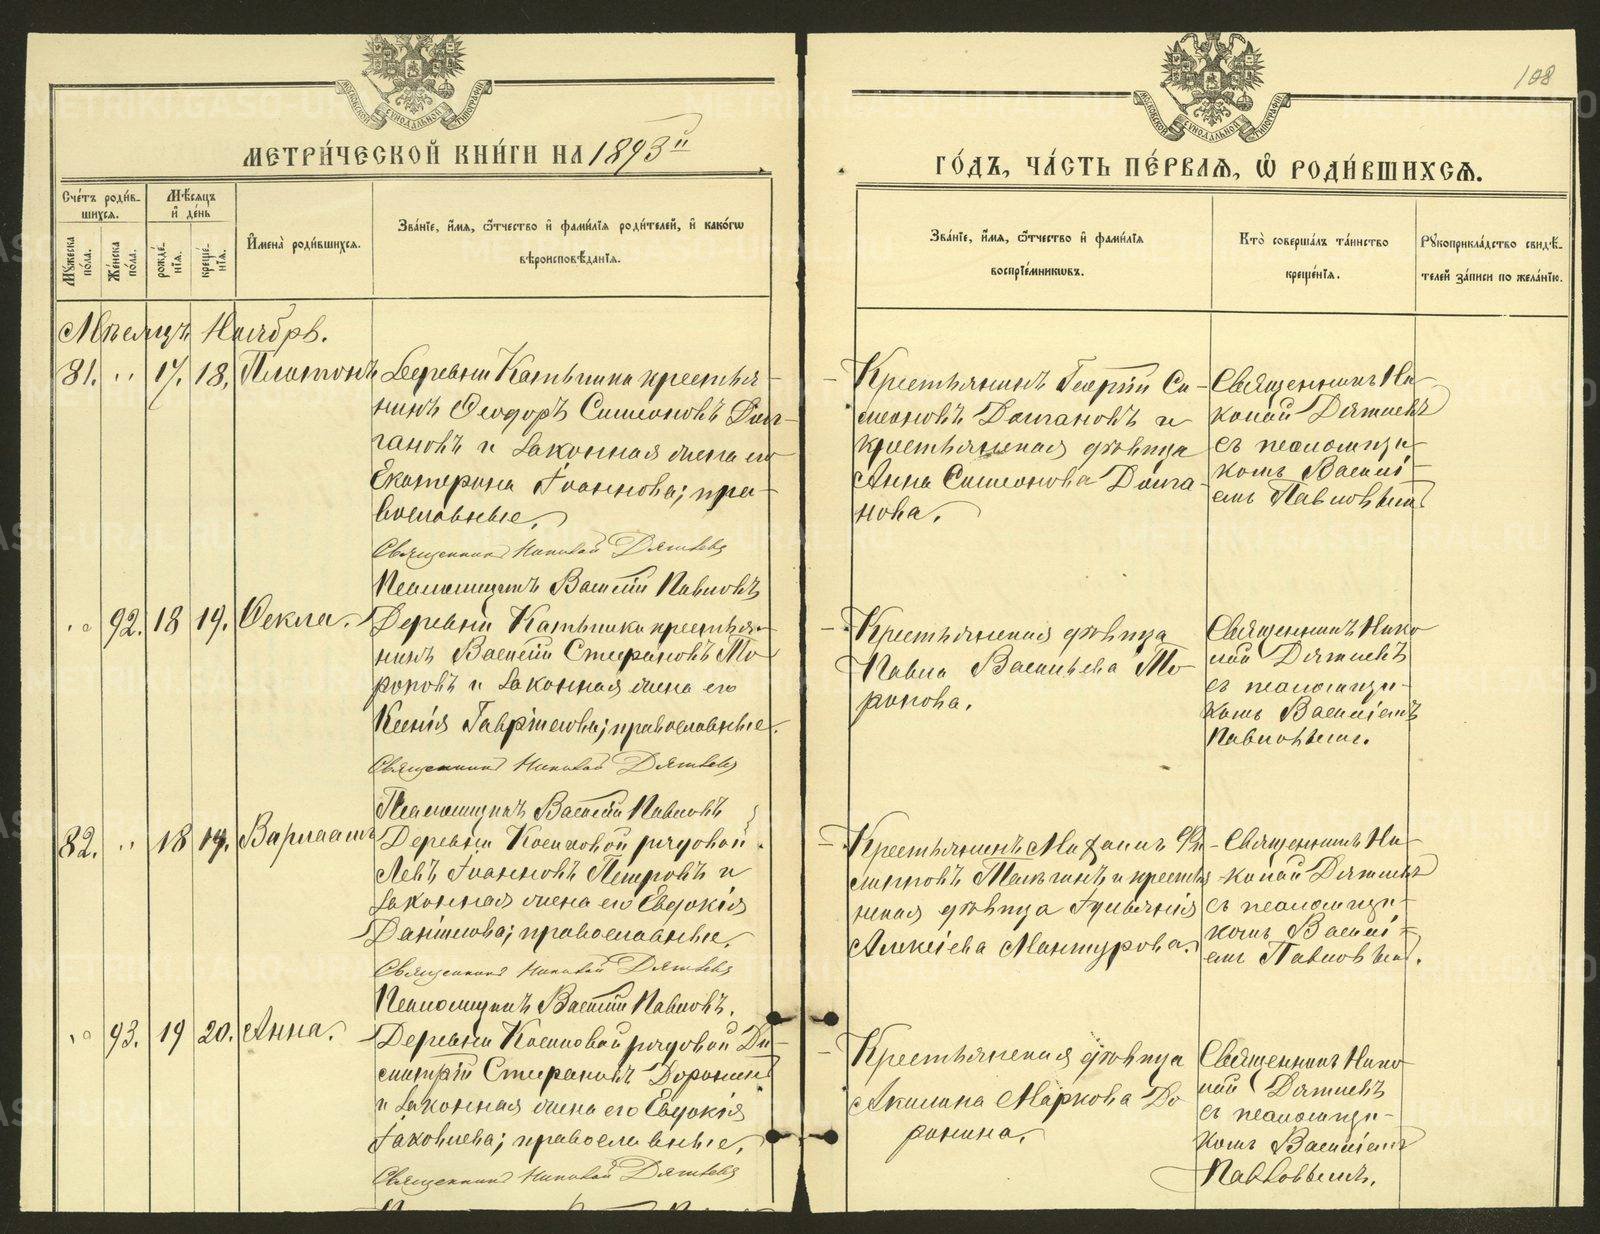 108
МЕТРИ́ЧЕСКОЙ КНИ́ГИ НА 1893й
ГО́ДЪ, ЧА́СТЬ ПЕ́РВАЯ, Ѽ РОДИ́ВШИХСЯ.
МОСКОВСКОЙ СѴНОДАЛЬНОЙ ТИПОГРАФІИ
МОСКОВСКОЙ СѴНОДАЛЬНОЙ ТИПОГРАФІИ
Сче́тъ роди́вшихся.
Му́жеска по́ла.
Же́нска по́ла.
Мѣ́сяцъ и҆ де́нь
рожде́нїѧ.
креще́нїѧ.
И҆мена̀ роди́вшихсѧ.
Зва́нїе, и҆́мѧ, ѻ҆́тчество и҆ фами́лїѧ роди́телей, и҆ како́гѡ
вѣроисповѣ́данїѧ.
Зва́нїе, и҆́мѧ, ѻ҆́тчество и҆ фами́лїѧ
воспрїе́мникѡвъ.
Кто̀ соверша́лъ та́инство
креще́нїѧ.
Рꙋкоприкла́дство свидѣ́-
телей за́писи по жела́нїю.
Мѣсяцъ Ноябрь.
81. " 17. 18. Платонъ
Деревни Катышки крестья-
нинъ Ѳеодоръ Симеоновъ Дол-
гановъ и законная жена его
Екатерина Іоаннова; пра-
вославные.
Священникъ Николай Дягилевъ
Псаломщикъ Василій Павловъ
Крестьянинъ Георгій Си-
меоновъ Долгановъ и
крестьянская дѣвица
Анна Симеонова Долга-
нова.
Священникъ Ни-
колай Дягилевъ
съ псаломщи-
комъ Васил-
емъ Павловымъ
" 92. 18 19. Ѳекла.
Деревни Катышки крестья-
нинъ Василій Стефановъ То-
роповъ и законная жена его
Ксенія Гавріилова; православные.
Священникъ Николай Дягилевъ
Псаломщикъ Василій Павловъ
Крестьянская дѣвица
Павла Васильева То-
ропова.
Священникъ Нико-
лай Дягилевъ
съ псаломщи-
комъ Василіемъ
Павловымъ.
82. " 18 19. Варлаамъ
Деревни Косиковой рядовой
Левъ Іоанновъ Петровъ и
законная жена его Евдокія
Даніилова; православные.
Священникъ Николай Дягилевъ
Псаломщикъ Василій Павловъ.
Крестьянинъ Михаилъ
Тельгинъ и крестья-
нская дѣвица Іуліанія
Алексіева Мантурова.
Священникъ Ни-
колай Дягилевъ
съ псаломщи-
комъ Васи-
емъ Павловымъ.
" 93. 19 20. Анна.
Деревни Косиковой рядовой Ди-
митрій Стефановъ Доронинъ
и законная жена его Евдокія
Іаковлева; православные.
Священникъ Николай Дягилевъ
Крестьянская дѣвица
Акилина Маркова До-
ронина.
Священникъ Нико-
лай Дягилевъ
съ псаломщи-
комъ Василіемъ
Павловымъ.